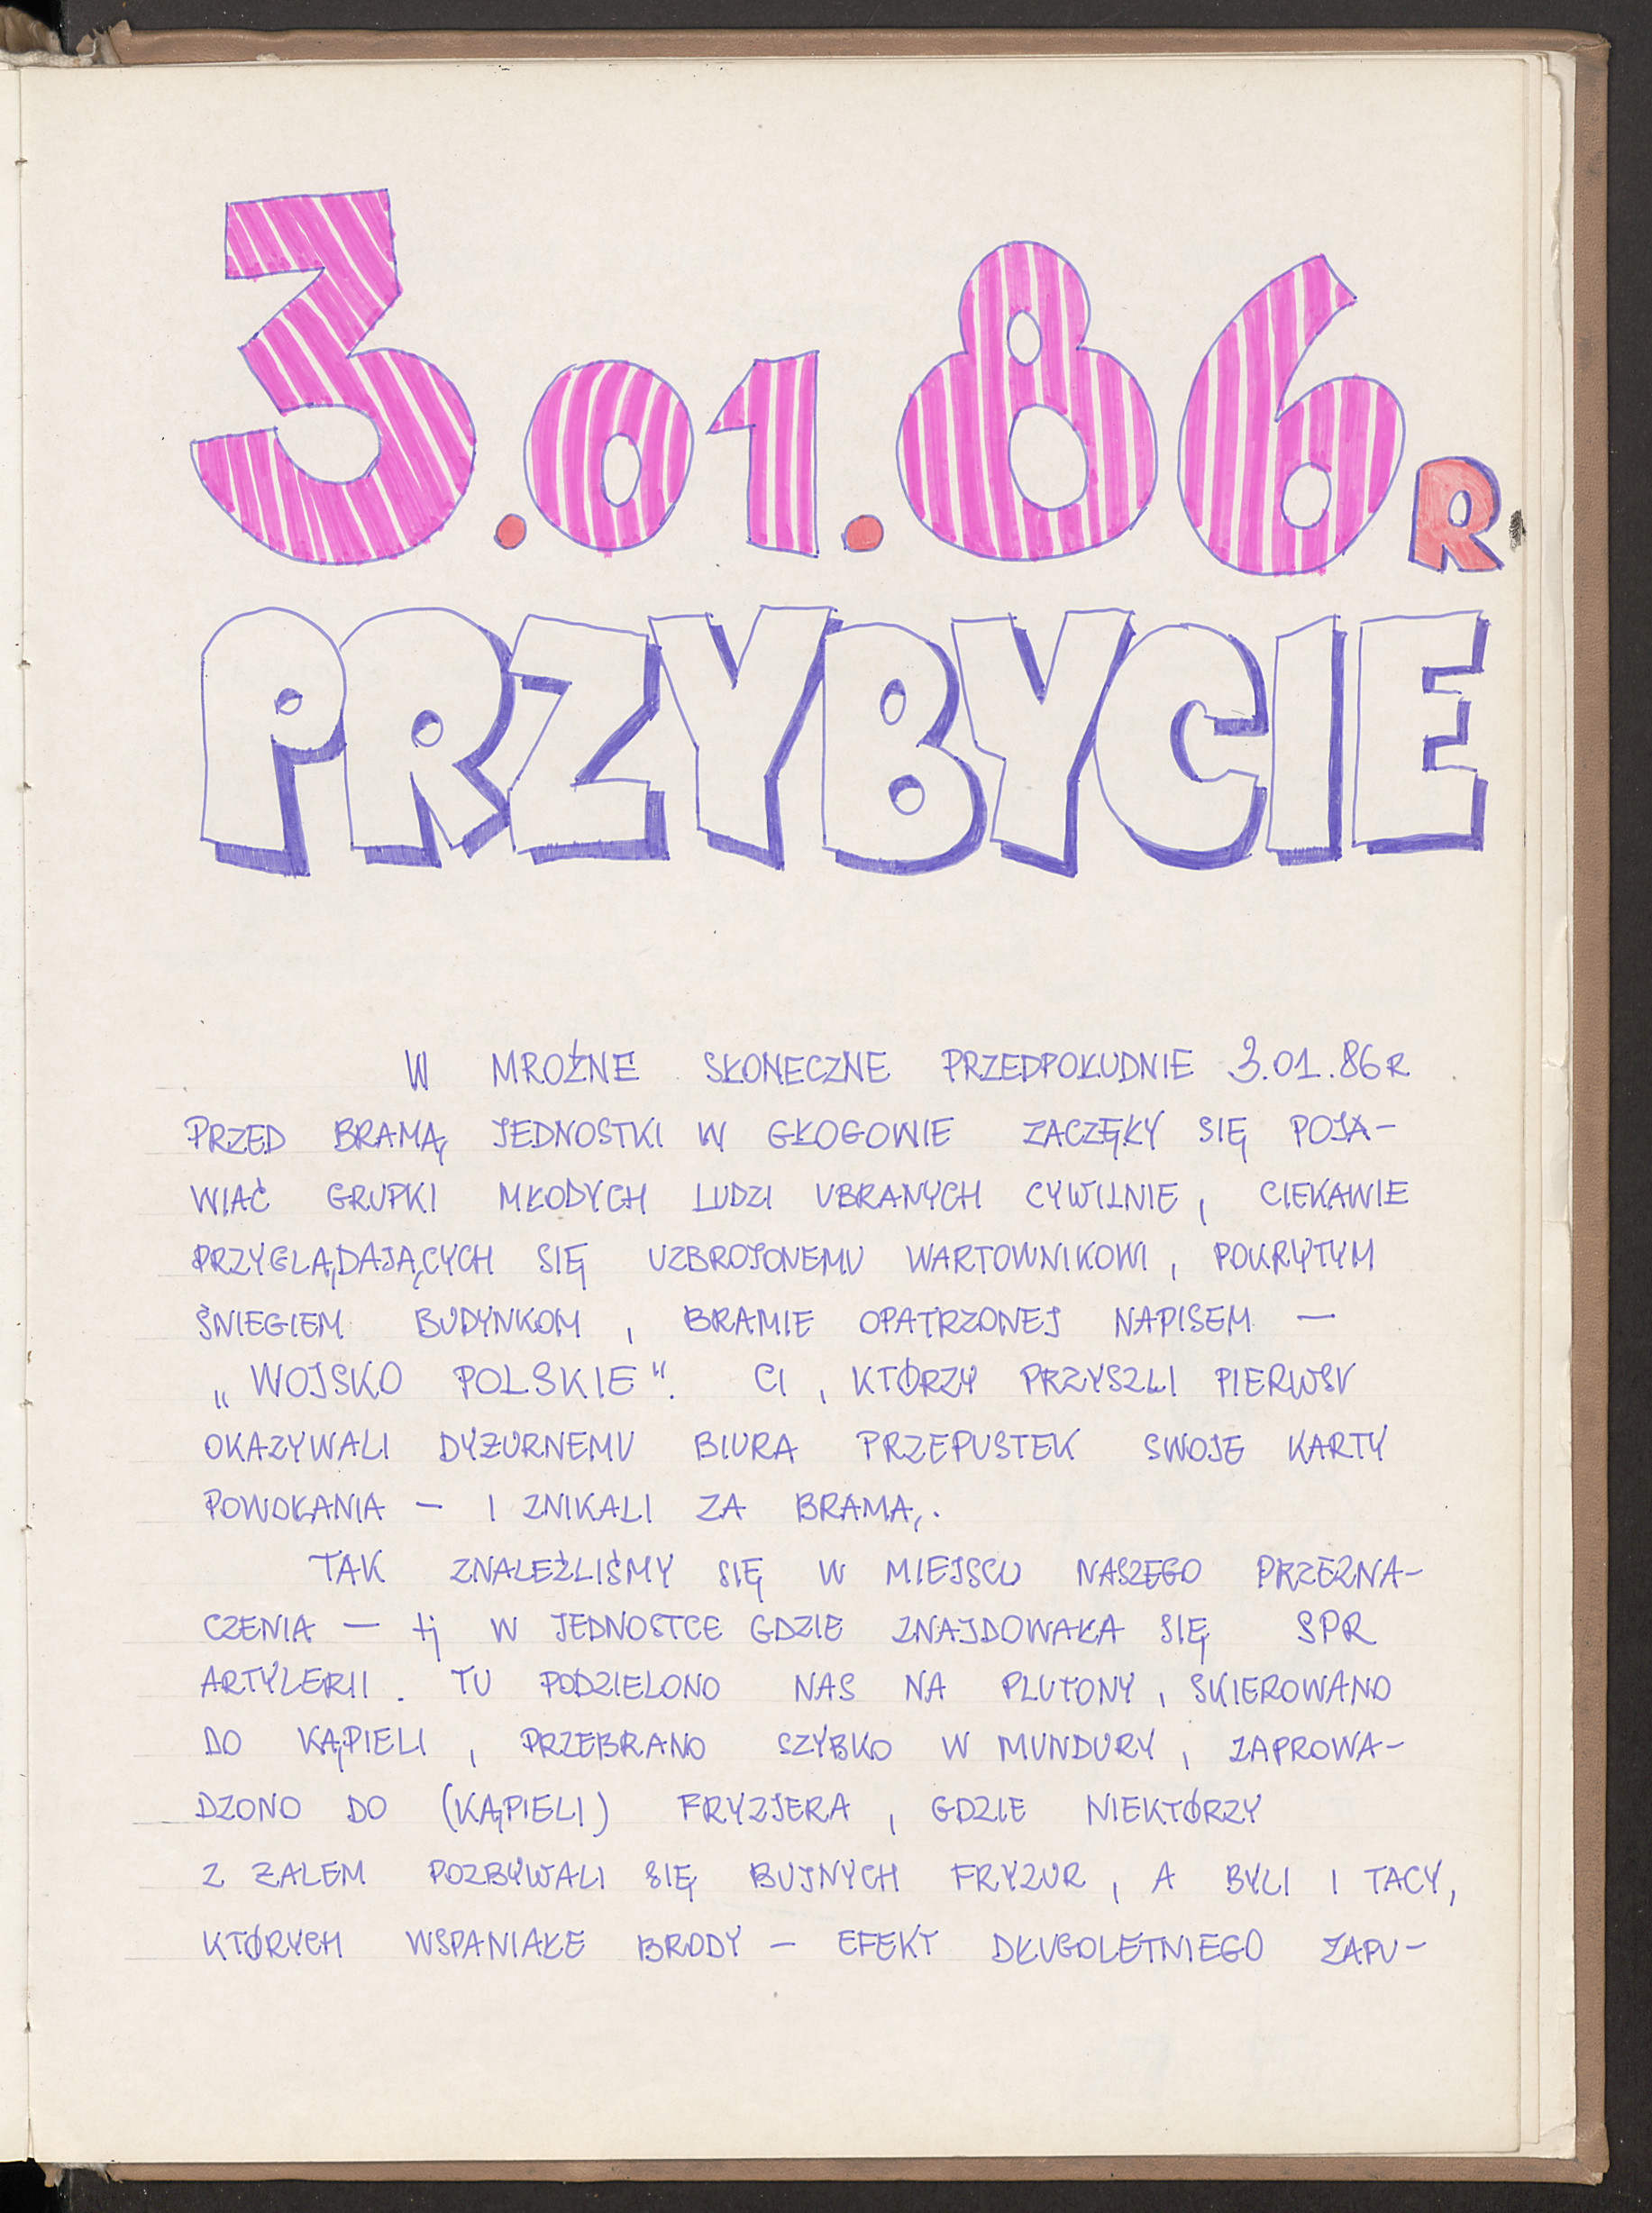 3.01.86R
PRZYBYCIE
W MROŹNE SŁONECZNE PRZEDPOŁUDNIE 3.01.86R
PRZED BRAMĄ JEDNOSTKI W GŁOGOWIE ZACZĘŁY SIĘ POJA-
WIAĆ GRUPKI MŁODYCH LUDZI UBRANYCH CYWILNIE, CIEKAWIE
PRZYGLĄDAJĄCYCH SIĘ UZBROJONEMU WARTOWNIKOWI, POKRYTYM
ŚNIEGIEM BUDYNKOM, BRAMIE OPATRZONEJ NAPISEM —
„WOJSKO POLSKIE". CI, KTÓRZY PRZYSZLI PIERWSI
OKAZYWALI DYŻURNEMU BIURA PRZEPUSTEK SWOJE KARTY
POWOŁANIA — I ZNIKALI ZA BRAMĄ.
TAK ZNALEŹLIŚMY SIĘ W MIEJSCU NASZEGO PRZEZNA-
CZENIA — tj W JEDNOSTCE GDZIE ZNAJDOWAŁA SIĘ SPR
ARTYLERII. TU PODZIELONO NAS NA PLUTONY, SKIEROWANO
DO KĄPIELI, PRZEBRANO SZYBKO W MUNDURY, ZAPROWA-
DZONO DO (KĄPIELI) FRYZJERA, GDZIE NIEKTÓRZY
Z ŻALEM POZBYWALI SIĘ BUJNYCH FRYZUR, A BYLI I TACY,
KTÓRYCH WSPANIAŁE BRODY — EFEKT DŁUGOLETNIEGO ZAPU-